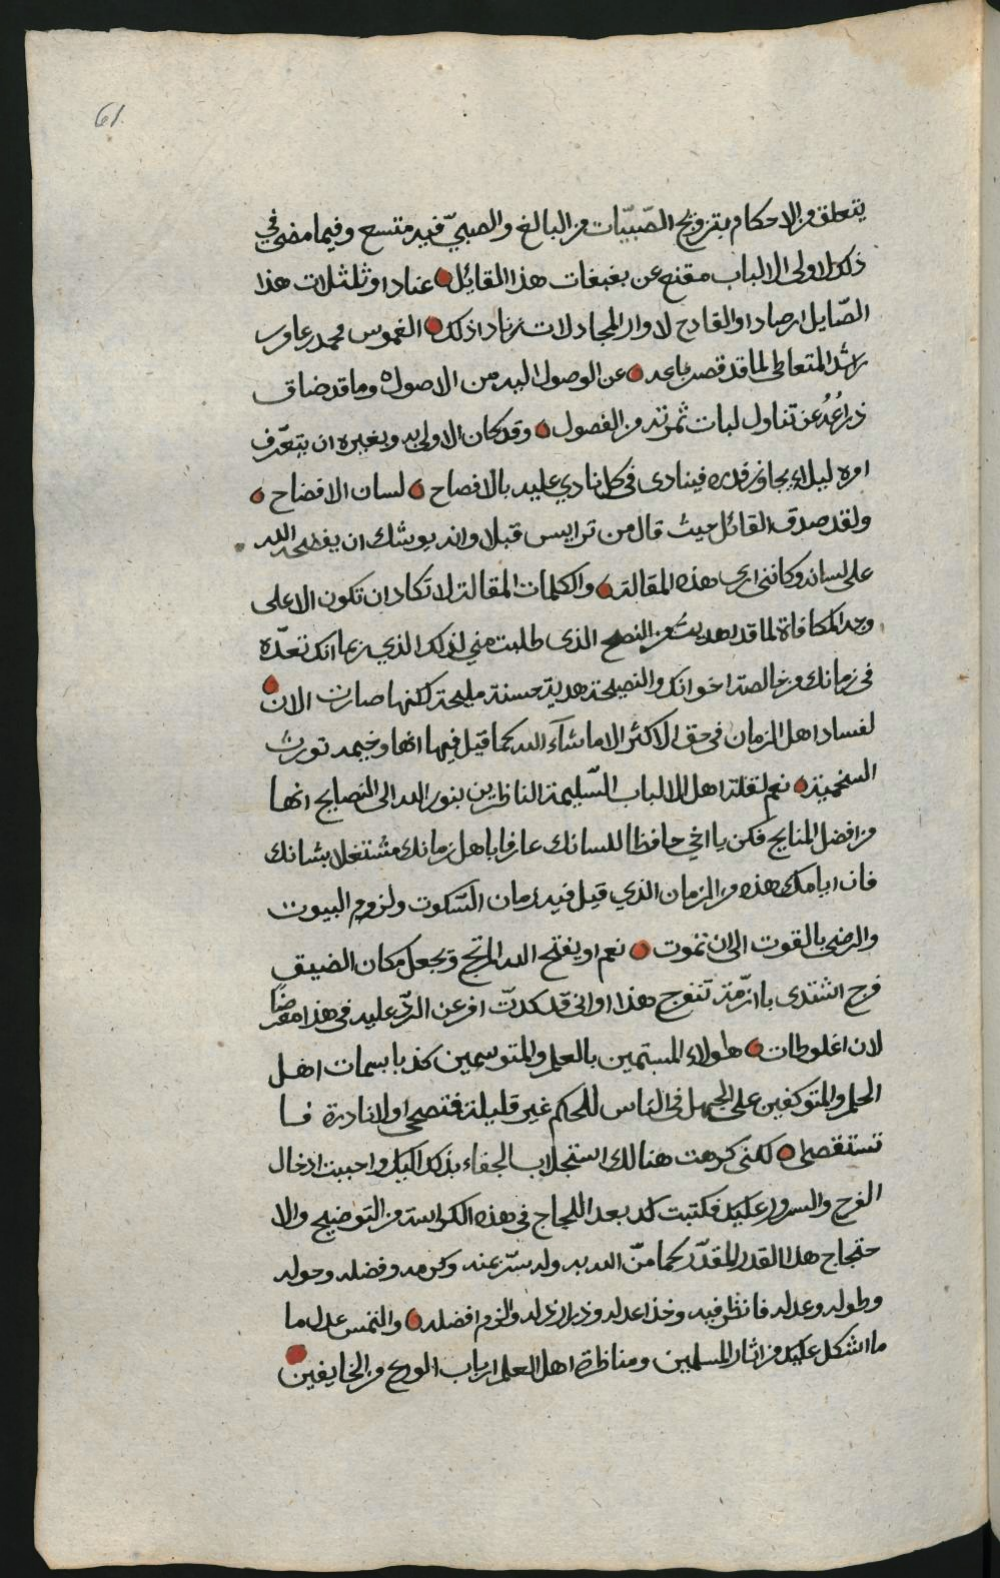 61
يتعلق من الاحكام بتزويج الصّبيّات من البالغ والصبيّ فيه متسع وفيما مضى في
ذكر لاولى الالباب مقنع عن بغبغات هذا القايل عنادا وثلثلات هذا
الصّايل ارصادا والقادح لاوار المجادلات زنادا ذلك الغموس محمد
راشد المتعاطى لما قد قصر باعه عن الوصول اليه من الاصول وما قد ضاق
ذراعُهُ عن تناول لبات ثمرته من الفصول وقد كان الاولى به وبغيره ان يتعرّف
امره ليلا يجاوز قدره فينادى في كل نادي عليه بالافصاح لسان الافضاح
ولقد صدق القائل حيث قال من ترايس قبل اوانه يوشك ان يفضحه الله
على لسانه وكانني ارى هذه المقالة والكلمات المقالة لا تكاد ان تكون الا على
وجه المكافاة لما قد اهديتُ من النصح الذى طلبت مني لذلك الذي زبما انك تعدّه
في زمانك من خالصة اخوانك والنصيحة هدية حسنة مليحة لكنها صارت الان
لفساد اهل الزمان في حق الاكثر الا ما شآء الله كما قيل فيها انها وخيمه تورث
السخمية نعم لقلة اهل الالباب السّليمة الناظرين بنور الله الى النصايح انها
من افضل المنايح فكن يا اخي حافظا للسانك عارفا باهل زمانك مشتغلا بشانك
فان ايامك هذه من الزمان الذي قيل فيه زمان السّكوت ولزوم البيوت
والرضى بالقوت الى ان تموت نعم او يفتح الله المرتج ويجعل مكان الضيق
فرج اشتدى يا ازمة تنفرج هذا واني قد كدتّ افر عن الردّ عليه في هذا معرضًا
لان اغلوطات هاولاء المستمين بالعلم والمتوسمين كذبا بسمات اهل
الحلم والمتوكفين على الجهل في الناس للحكم غير قليلة فتحصى اولا نادرة فـ
تستقصى لكني كرهت هنالك استجلاب الجفاء بذلك اليك واحببت ادخال
الفرح والسرور عليك فكتبت لك بعد اللجاج في هذه الكراسة من التوضيح والا
حتجاج هذا القدر المقدّر كما منّ الله به وله يسّر عنه وكرمه وفضله وحوله
وطوله وعدله فانظر فيه وخذ اعدله وذر ارذله والزم افضله والتمس عدل ما
ما اشكل عليك من اثار المسلمين ومناظرة اهل العلم ارباب الورع من الخايفين